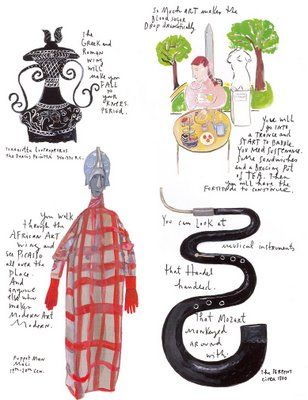 the
Greek and
Roman
wing
will
make you
FALL
to
your
KNEES.
PERIOD.
the Darius Painter
So Much ART makes the
Blood sugar
Drop dramatically.
You will
go INTO
a TRANCE and
START to BABBLE.
You Need sustenance.
Some sandwiches
and a bracing Pot
of TEA. Then
you will have the
FORTITUDE to CONTINUE.
You walk
through the
AFRICAN ART
wing and
see Picasso
all over the
place.
And
anyone
else who
makes
Modern Art
Modern.
Puppet Man
Mali
19th-20th Cen.
You can Look at
musical instruments
that Handel
handled.
That Mozart
monkeyed
around
with.
the SERPENT
circa 1800